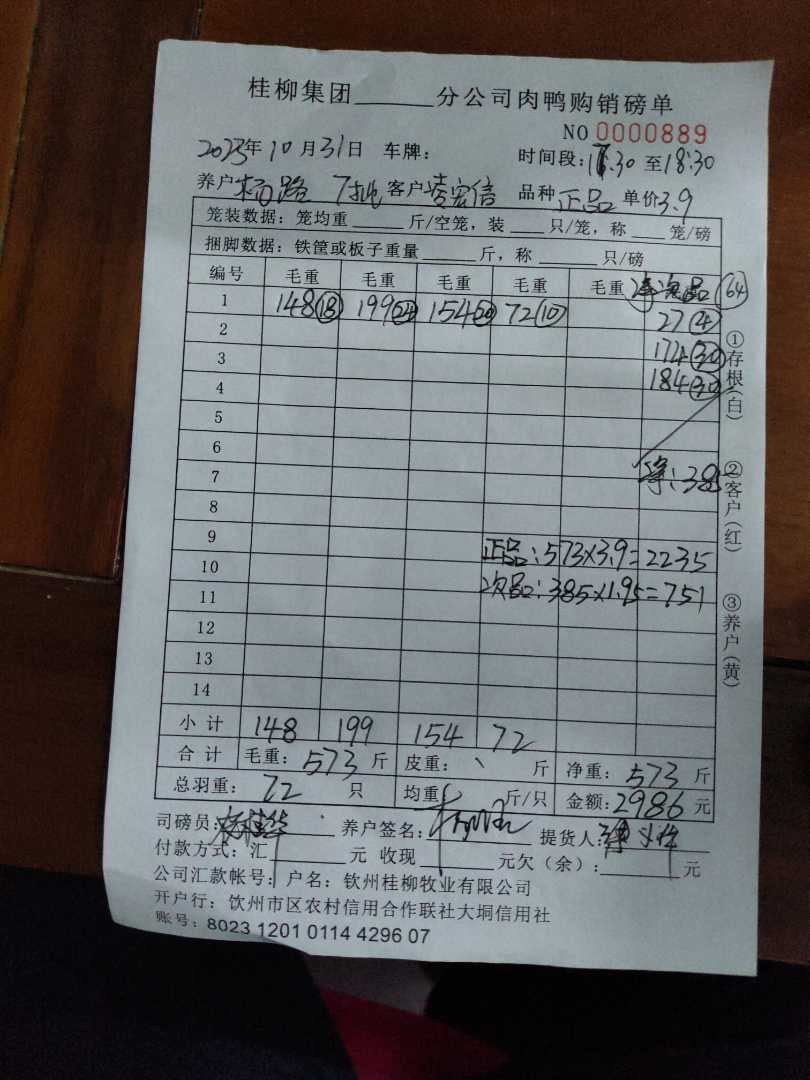 桂柳集团______分公司肉鸭购销磅单
NO 0000889
2023年10月31日 车牌： 时间段：17.30 至18:30
养户杨路 7批 客户 品种 正品 单价3.9
笼装数据：笼均重____斤/空笼，装___只/笼，称___笼/磅
捆脚数据：铁筐或板子重量____斤，称____只/磅
编号 毛重 毛重 毛重 毛重 毛重 次品 64
1 148 18 199 24 154 20 72 10
2 27 4
3 174 30
4 184 30
5
6
7 净：385
8
9 正品：573×3.9=2235
10 次品：385×1.95=751
11
12
13
14
小计 148 199 154 72
合计 毛重：573斤 皮重：、斤 净重：573斤
总羽重：72 只 均重 斤/只 金额：2986元
司磅员： 养户签名： 提货人：
付款方式：汇______元 收现______元欠（余）：______元
公司汇款帐号：户名：钦州桂柳牧业有限公司
开户行：饮州市区农村信用合作联社大垌信用社
账号：8023 1201 0114 4296 07
①存根（白）
②客户（红）
③养户（黄）